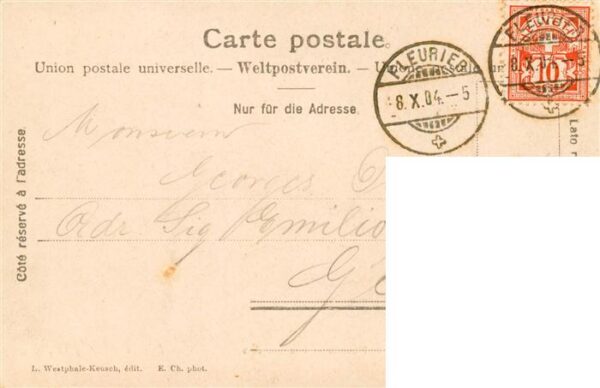 Carte postale.
Union postale universelle. — Weltpostverein. — Un
Nur für die Adresse.
FLEURIER
8.X.04.–5
FLEURIER
8.X.04.–5
HELVETIA
10
Côté réservé à l'adresse.
Lato r
Monsieur
Georges
Adr Sig Emilio
Gê
L. Westphale-Keusch, édit. E. Ch. phot.